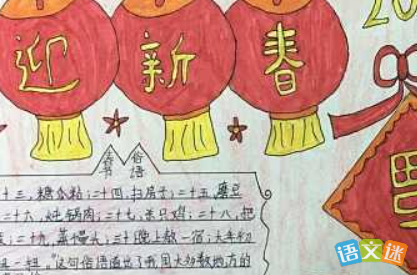 迎新春
20
春节
俗语
十三,糖瓜粘;二十四,扫房子;二十五,磨豆
二十六,炖锅肉;二十七,杀只鸡;二十八,把
二十九,蒸馒头;三十晚上熬一宿;大年初
扭一扭。"这句俗语道出了
语文迷